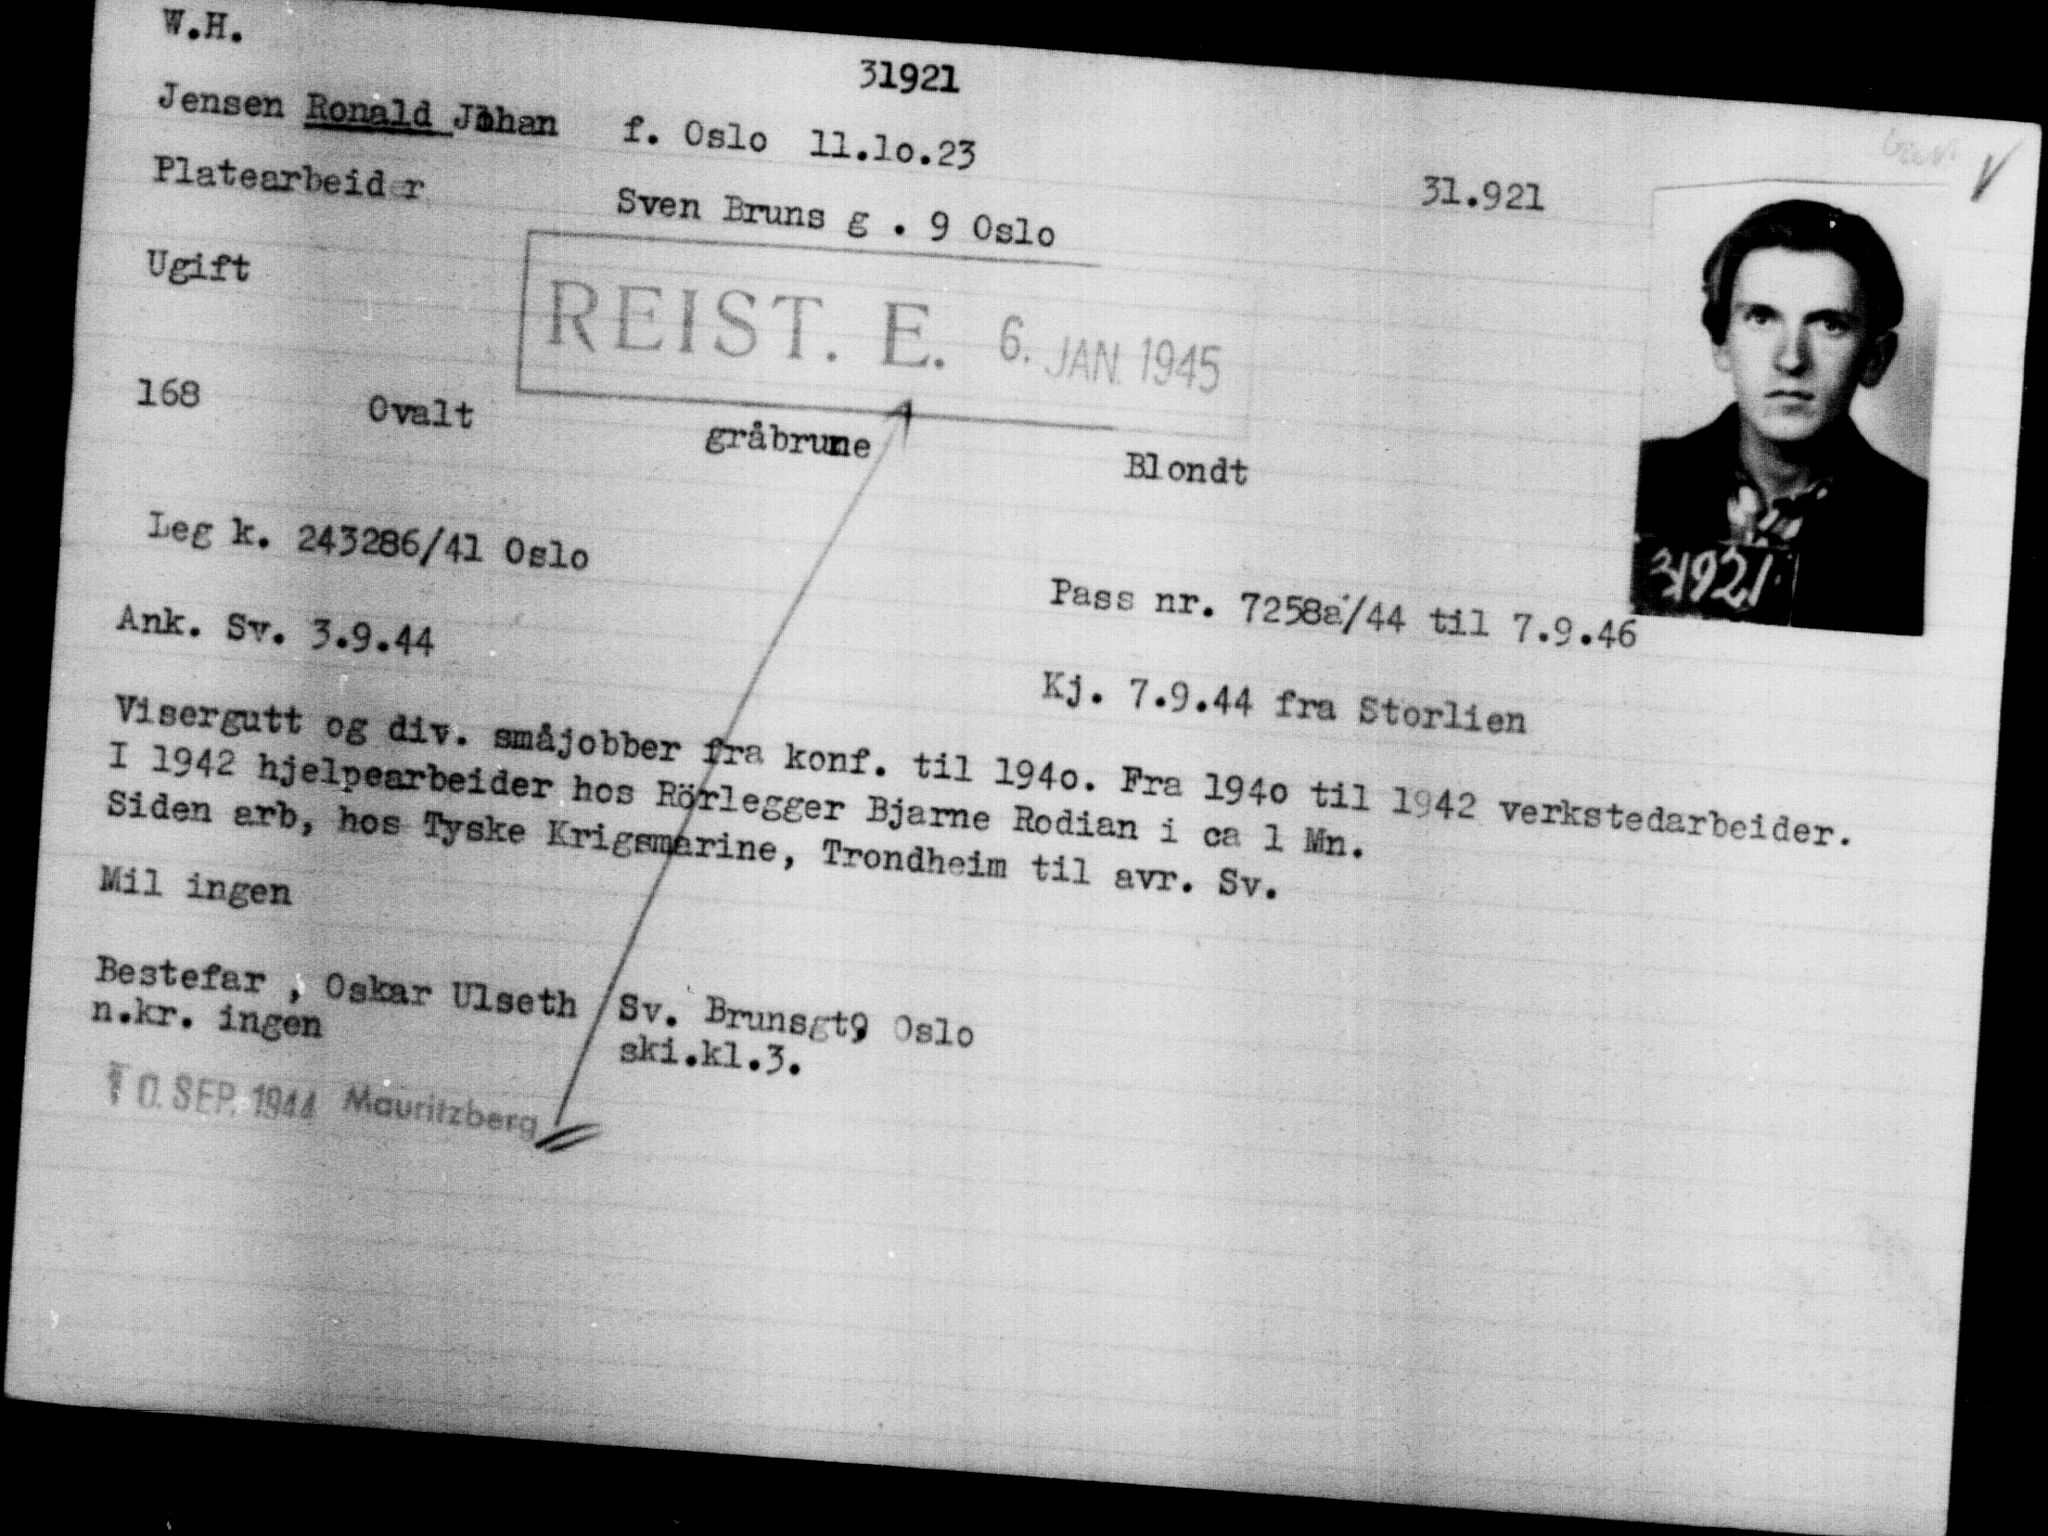 W.H.
31921
Jensen Ronald Johan f. Oslo 11.1o.23
Platearbeider Sven Bruns g . 9 Oslo 31.921
Ugift
REIST. E. 6. JAN. 1945
168 Ovalt gråbrune Blondt
31921
Leg k. 243286/41 Oslo Pass nr. 7258a/44 til 7.9.46
Ank. Sv. 3.9.44 Kj. 7.9.44 fra Storlien
Visergutt og div. småjobber fra konf. til 194o. Fra 194o til 1942 verkstedarbeider.
I 1942 hjelpearbeider hos Rörlegger Bjarne Rodian i ca 1 Mn.
Siden arb, hos Tyske Krigsmarine, Trondheim til avr. Sv.
Mil ingen
Bestefar , Oskar Ulseth Sv. Brunsgt9 Oslo
n.kr. ingen ski.kl.3.
10. SEP. 1944 Mauritzberg